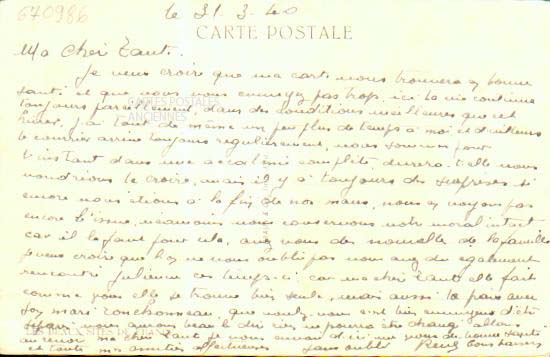 670986
le 31-3-40
CARTE POSTALE
Ma Cher Tante.
Je veux croire que ma carte vous trouvera en bonne
santé et que vous vous ennuyez pas trop. ici la vie continue
toujours pareillement dans des conditions meilleures que cet
hiver, j'ai tout de même un peu plus de temps à moi et d'ailleurs
le courrier arrive toujours régulièrement, nous sommes pour
l'instant dans une accalmie complète durera-t-elle nous
voudrions le croire, mais il y a toujours des surprises si
encore nous étions à la fin de nos maux, nous n'y voyons pas
encore l'issue, néanmoins nous conservons notre moral intact
car il le faut pour cela, avez vous des nouvelles de la famille
je veux croire que l'on ne vous oublie pas vous avez du également
rencontré Julienne ces temps-ci car ma chère tante elle fait
comme vous elle se trouve bien seule, mais aussi
son mari
CARTES POSTALES
ANCIENNES
LES BEAUX SITES DE
au revoir ma cher Tante je vous envoi d'ici une
et toute mes amitiés affectueuses Sans oubli René